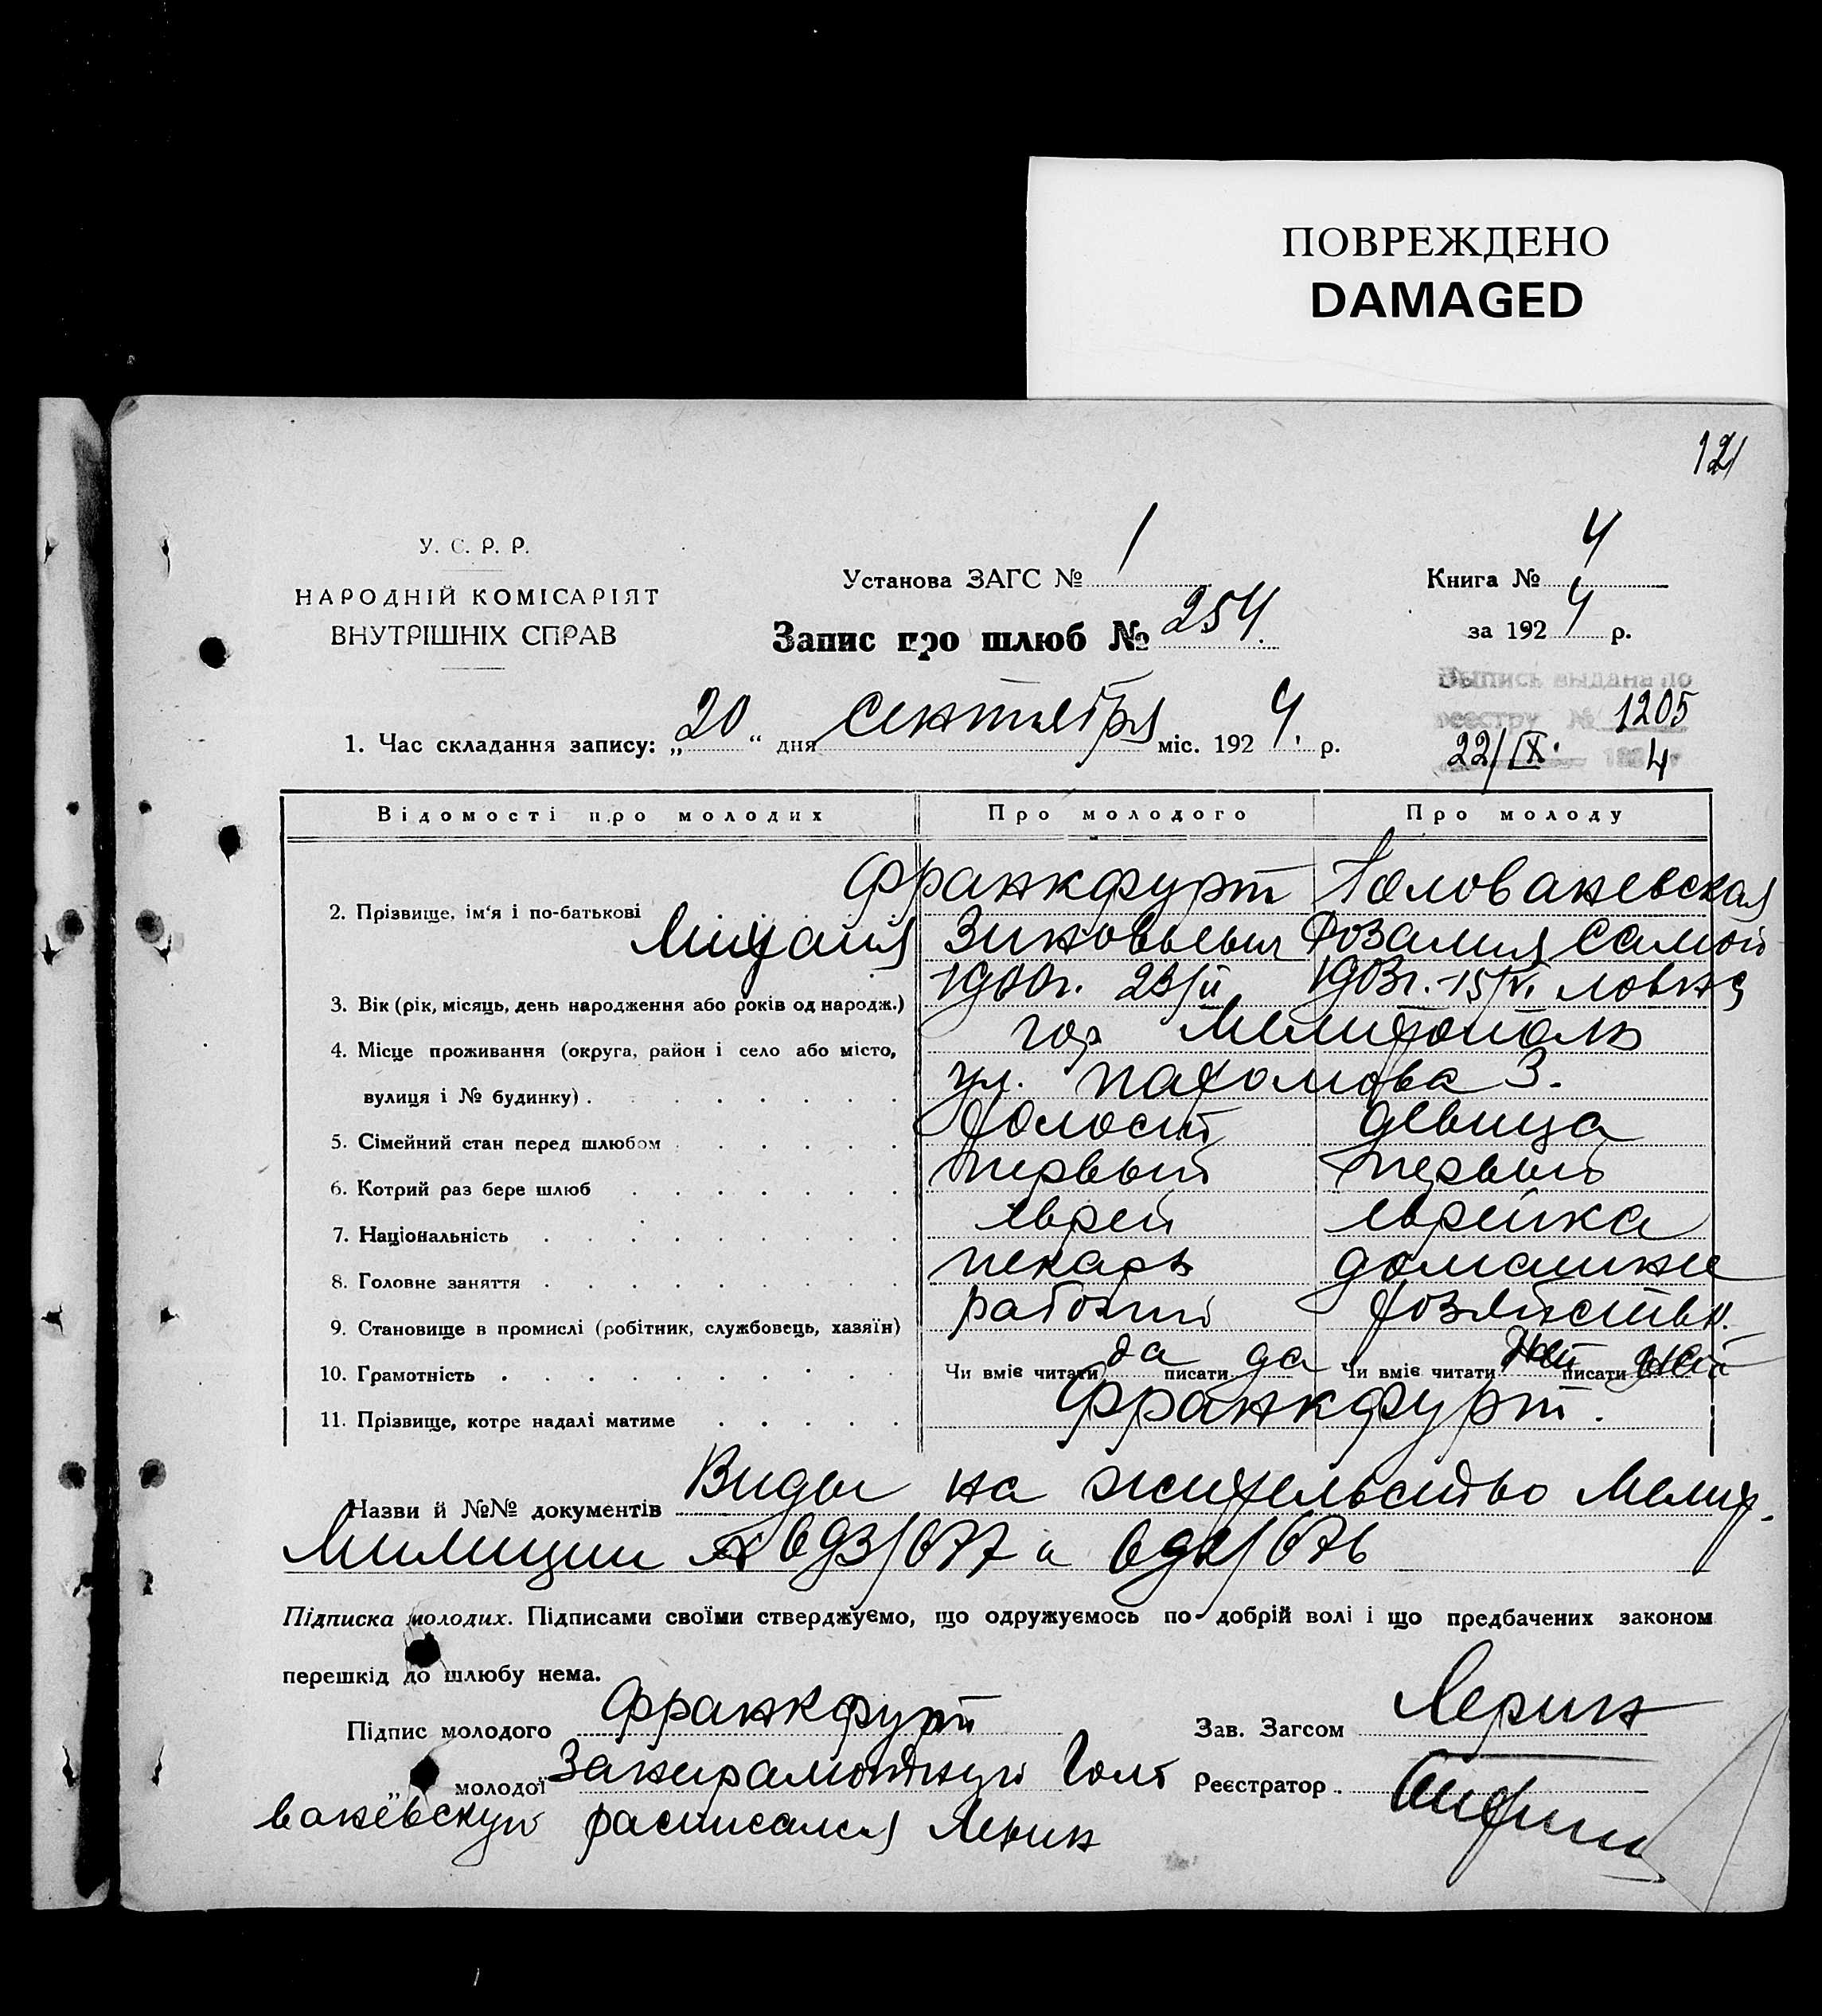 ПОВРЕЖДЕНО
DAMAGED
121
У. С. Р. Р.
НАРОДНІЙ КОМІСАРІЯТ
ВНУТРІШНІХ СПРАВ
Установа ЗАГС № 1
Запис про шлюб № 254.
Книга № 4
за 1924 р.
Выпись выдана по
реестру № 1205
22/IX. 192 4 г
1. Час складання запису: „20“ дня сентября міс. 1924. р.
Відомості про молодих Про молодого Про молоду
2. Прізвище, ім‘я і по-батькові Франкфурт Голованевская
Михаил Зиновьевич Розалия Самой-
3. Вік (рік, місяць, день народження або років од народж.) 1900г. 23/II 1903г.-15/VI ловна
4. Місце проживання (округа, район і село або місто, гор Мелитополь
вулиця і № будинку) . ул. Пахомова 3.
5. Сімейний стан перед шлюбом холост девица
6. Котрий раз бере шлюб первый первый
7. Національність еврей еврейка
8. Головне заняття пекарь домашнее
9. Становище в промислі (робітник, службовець, хазяїн) рабочий хозяйствн.
10. Грамотність Чи вміє читати да писати да Чи вміє читати нет писати нет
11. Прізвище, котре надалі матиме Франкфурт.
Назви й №№ документів Виды на жительство Мелит.
Милиции и
Підписка молодих. Підписами своїми стверджуємо, що одружуємось по добрій волі і що предбачених законом
перешкід до шлюбу нема.
Підпис молодого Франкфурт Зав. Загсом Лерин
„ молодої За неграмотную Голо Реєстратор .
ваневскую расписался